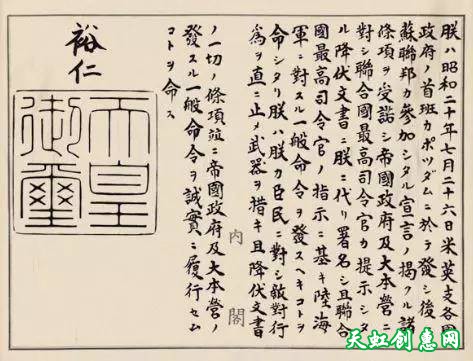 朕ハ昭和二十年七月二十六日米英支各國
政府ノ首班カポツダムニ於テ發シ後ニ
蘇聯邦カ參加シタル宣言ノ掲クル諸
條項ヲ受諾シ帝國政府及大本營ニ
對シ聯合國最高司令官カ提示シタ
ル降伏文書ニ朕ニ代リ署名シ且聯合
國最高司令官ノ指示ニ基キ陸海
軍ニ對スル一般命令ヲ發スヘキコトヲ
命シタリ朕ハ朕カ臣民ニ對シ敵對行
爲ヲ直ニ止メ武器ヲ措キ且降伏文書
ノ一切ノ條項竝ニ帝國政府及大本營ノ
發スル一般命令ヲ誠實ニ履行セム
コトヲ命ス
裕仁
天皇
御璽
内閣
天虹创意网